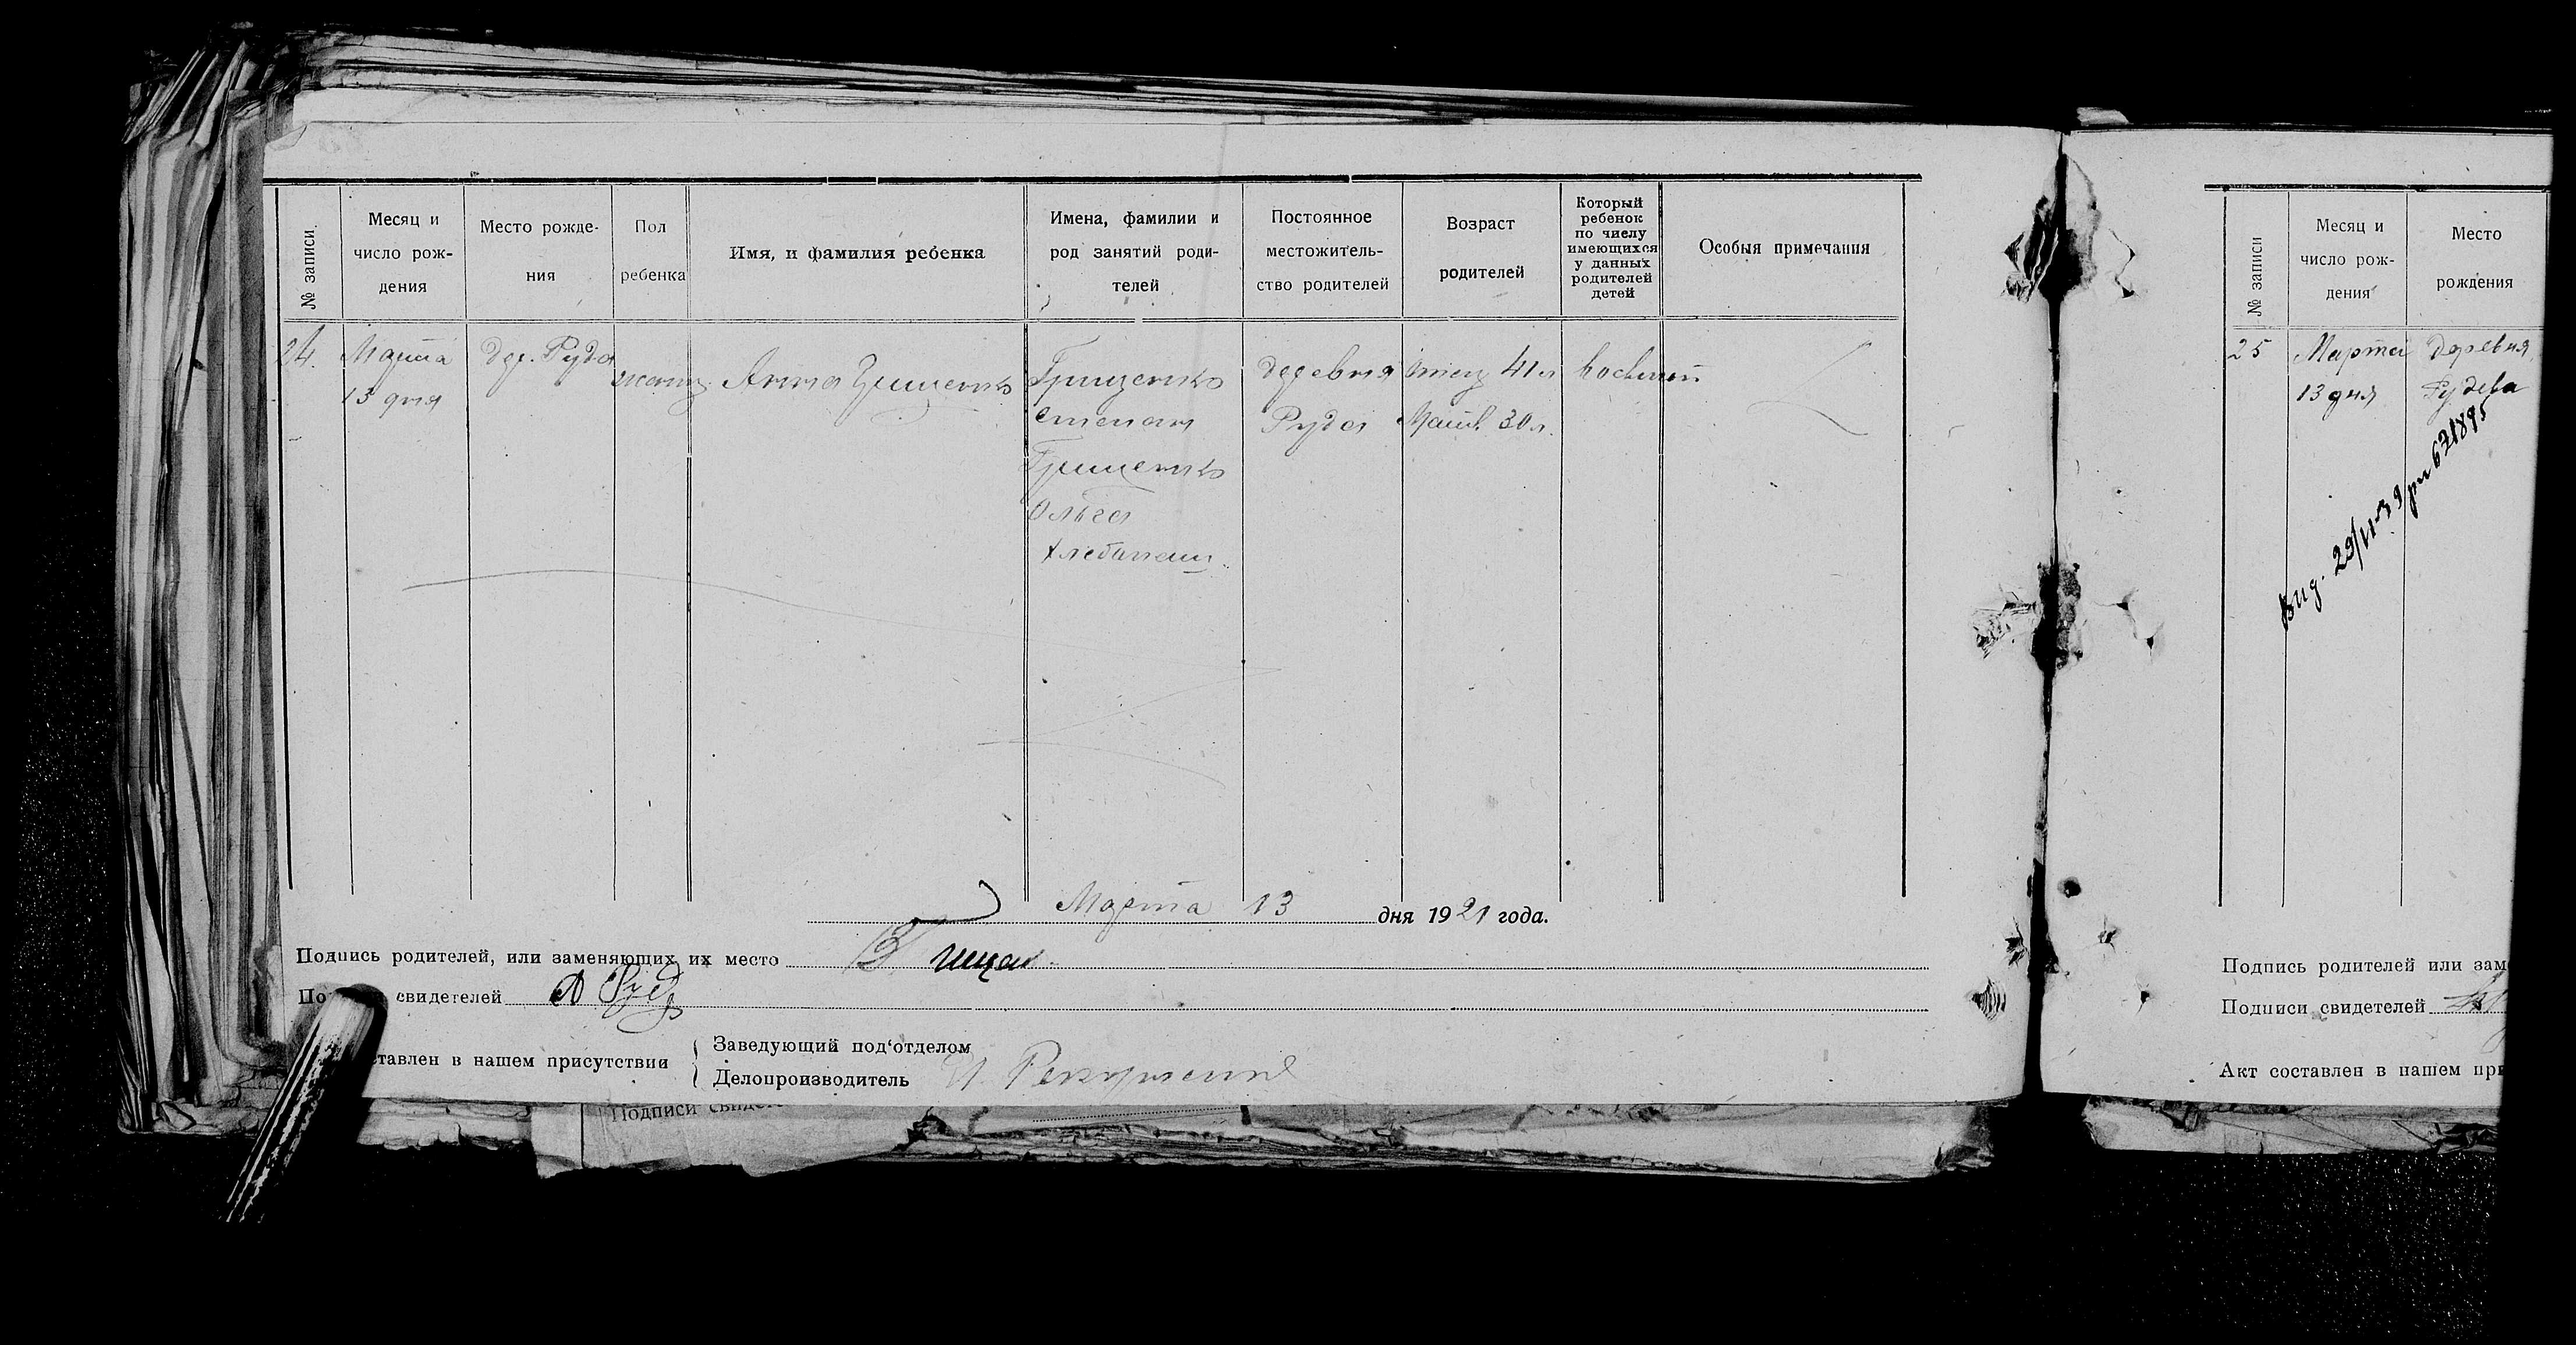 № записи.
Месяц и
число рож-
дения
Место рожде-
ния
Пол
ребенка
Имя, и фамилия ребенка
Имена, фамилии и
род занятий роди-
телей
Постоянное
местожитель-
ство родителей
Возраст
родителей
Который
ребенок
по числу
имеющихся
у данных
родителей
детей
Особыя примечания
24.
Марта
13 дня
дер. Руда
женск.
Анна Грищенко
Грищенко
Степан
Грищенко
Ольга
Хлебопаш.
деревня
Руда
Отец 41 л
Мать 30 л.
восьмой
Марта 13 дня 1921 года.
Подпись родителей, или заменяющих их место
По свидетелей
ставлен в нашем присутствии
Заведующий под'отделом
Делопроизводитель
Подписи свидете
№ записи
Месяц и
число рож-
дения
Место
рождения
25
Марта
13 дня
Деревня
Рудева
Вид. 29/
Подпись родителей или зам
Подписи свидетелей
Акт составлен в нашем при